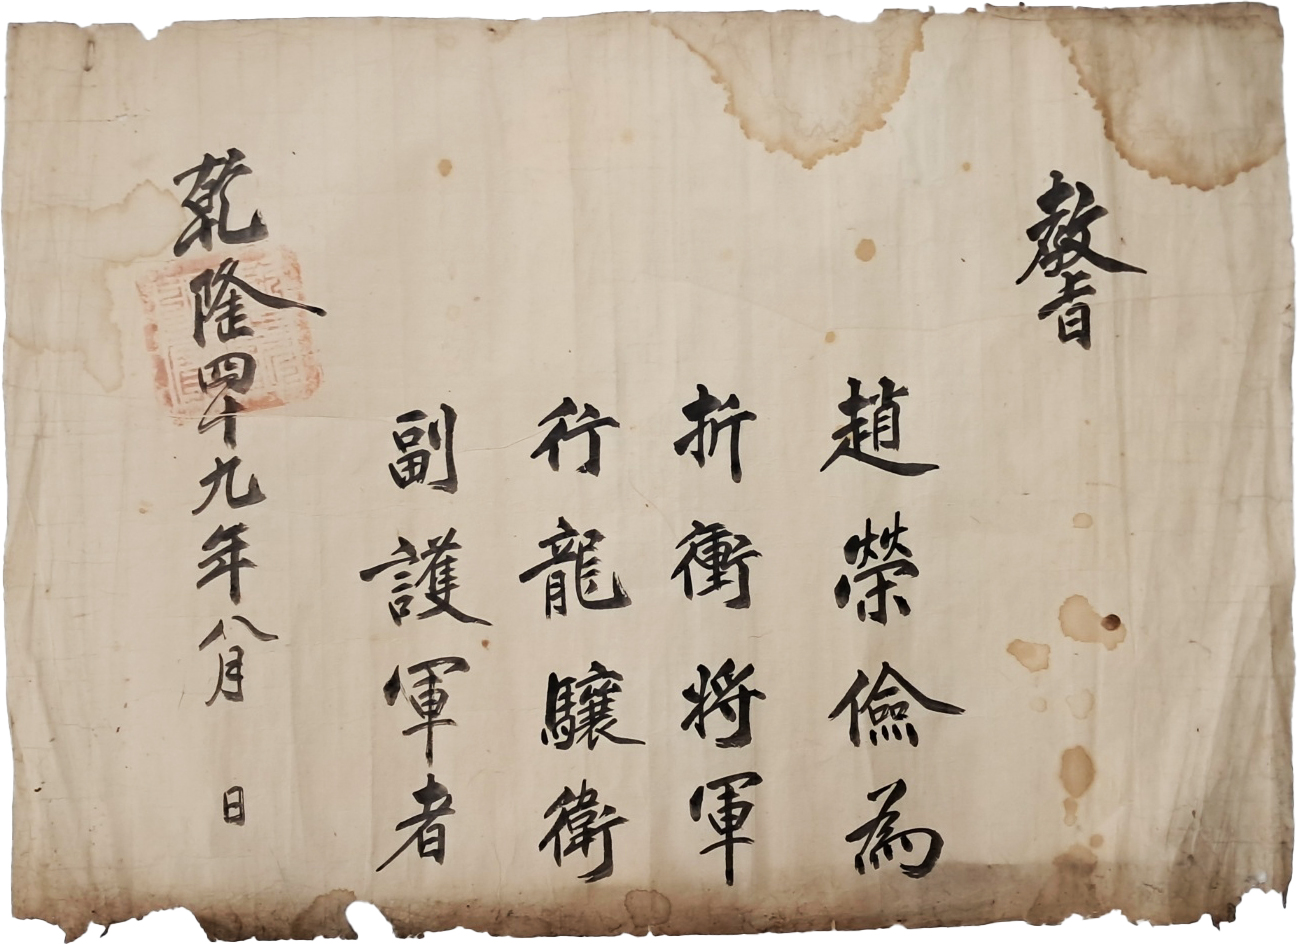 敎旨
趙榮儉為
折衝将軍
行龍驤衛
副護軍者
乾隆四十九年八月 日